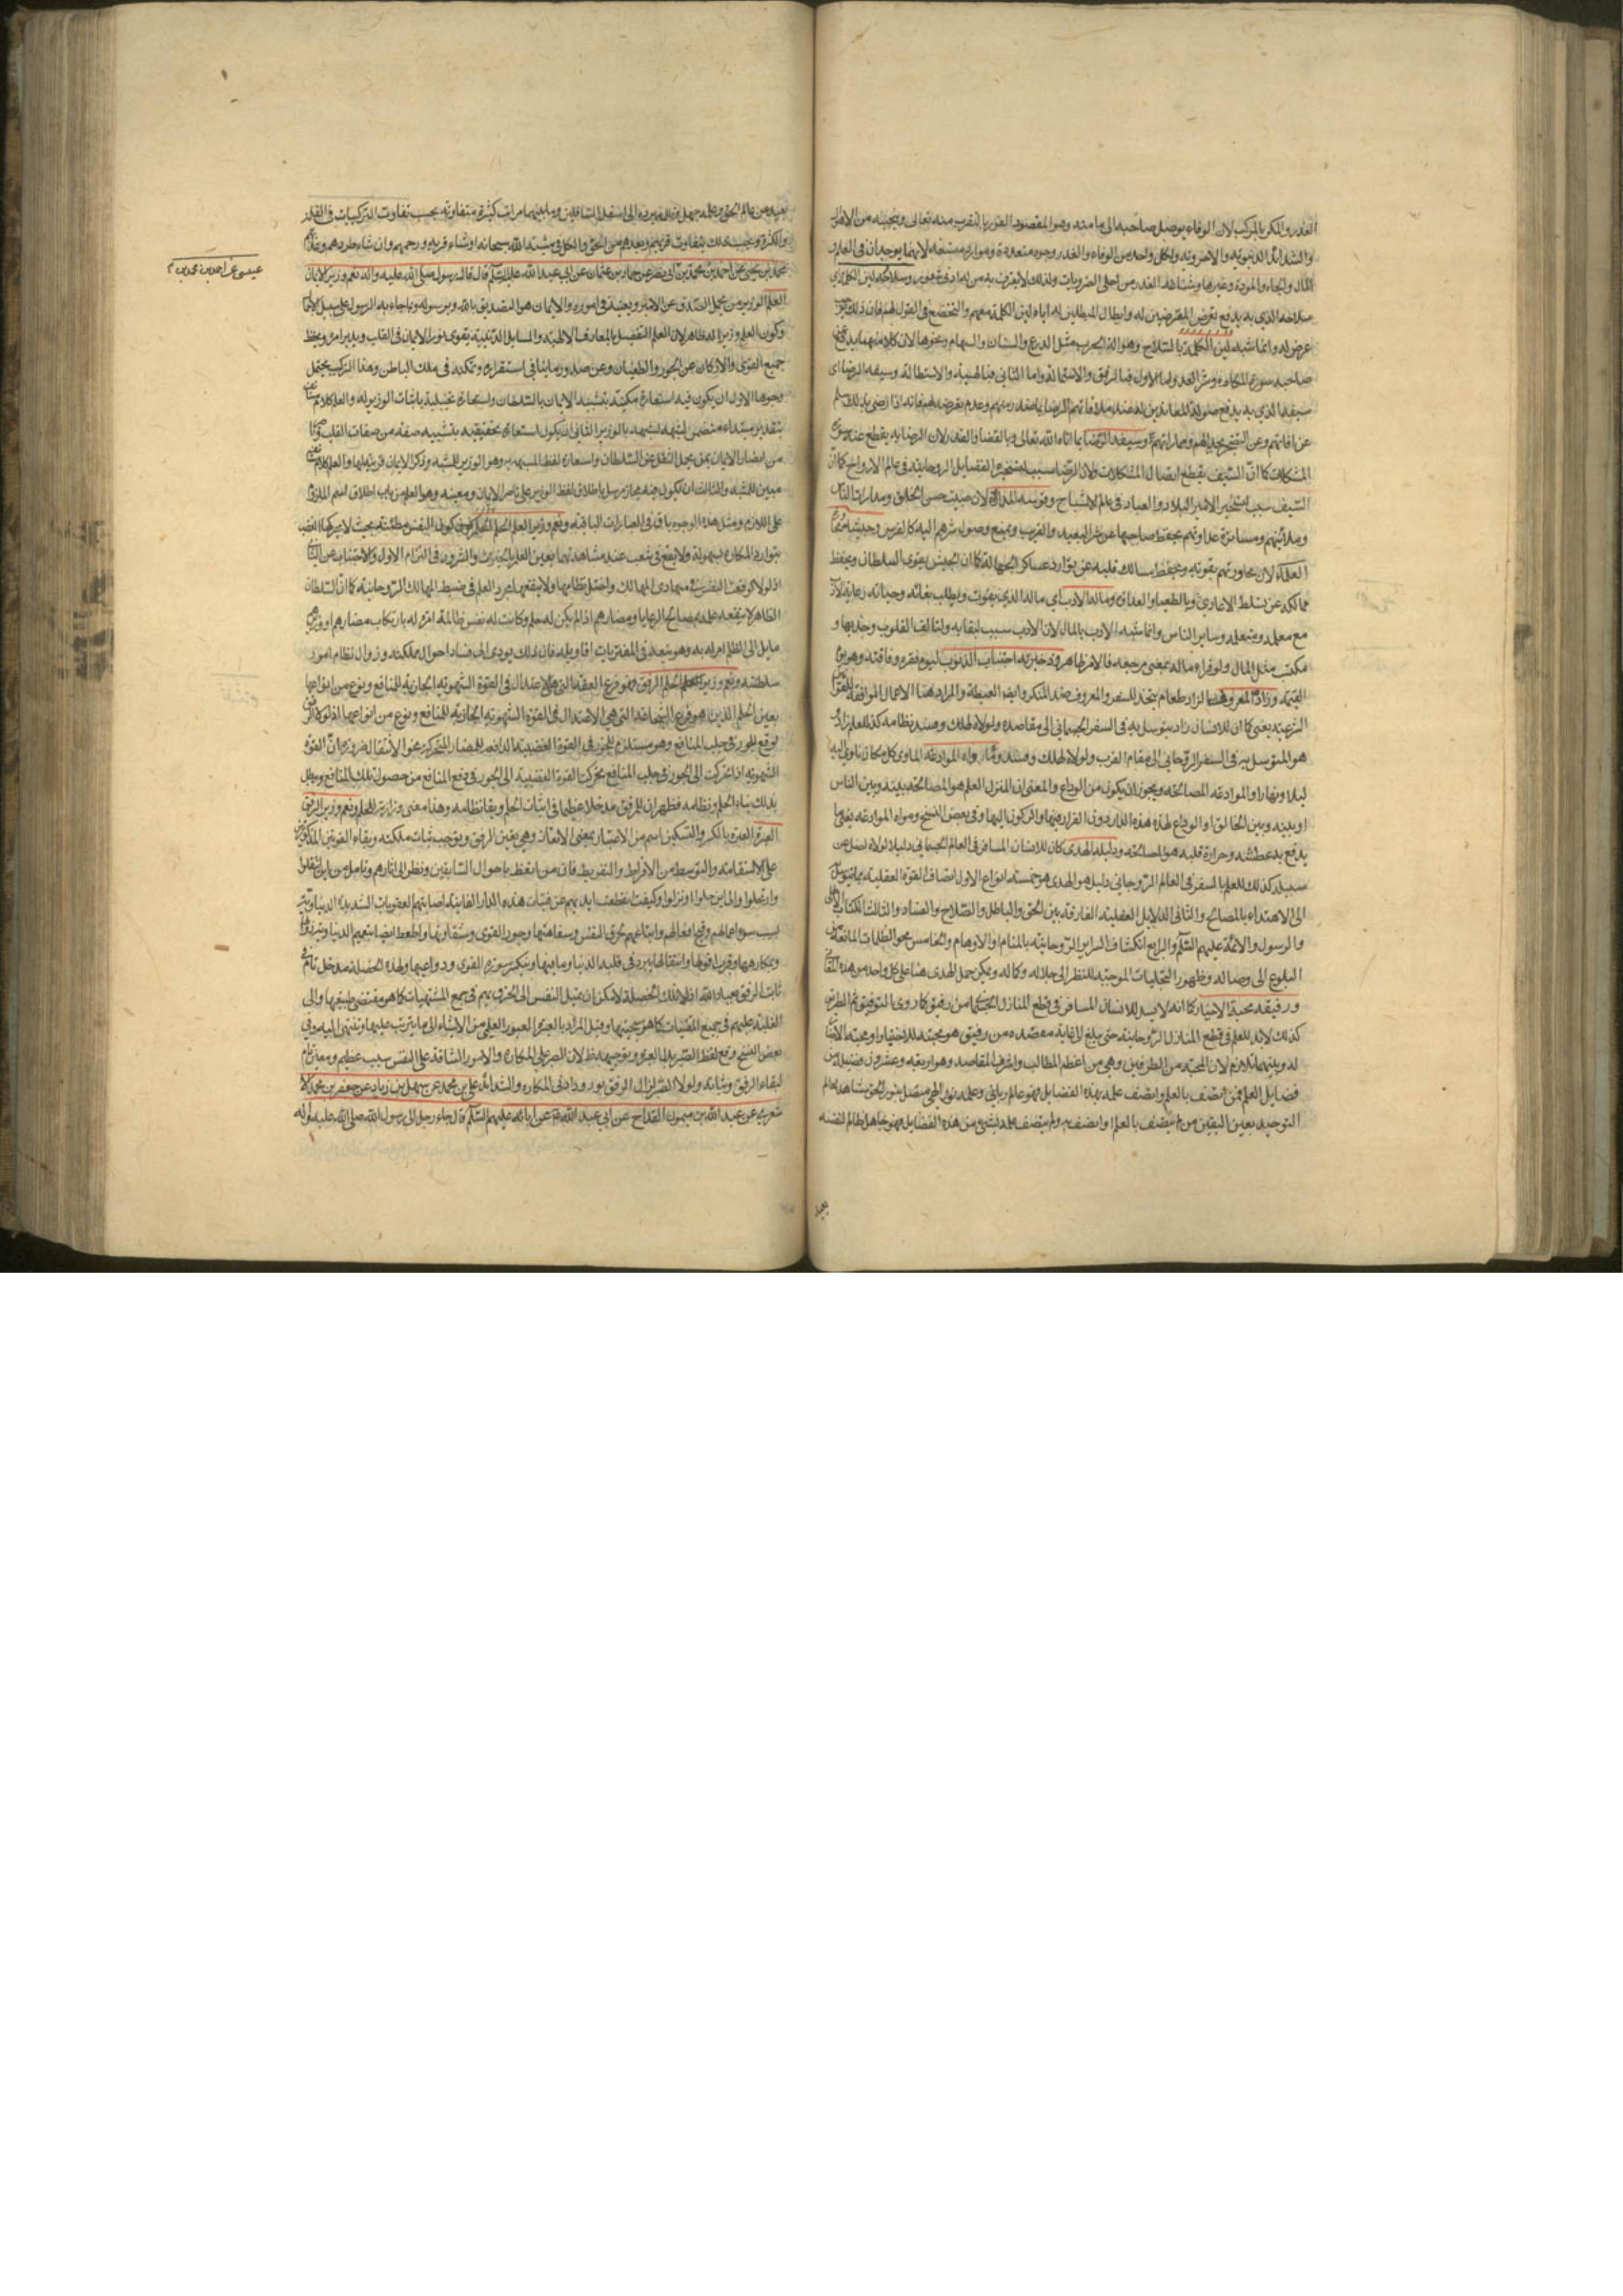 الغدر به والمكر بالمركب لان الوفاء يوصل صاحبه الى مامنه وهو المقصود الفوز بالتقرب منه تعالى وينجيه من الاهوال
والشدائد الدنيوية والاخروية ولكل واحد من الوفاء والغدر وجوه متعددة وموارد متسعة لانهما يوجدان في العلم و
المال والجاه والمودة وغيرها وشناعة الغدر من اجلى الضروريات ولذلك لايغدر به من له ادنى وسلاحه لين الكلمة اي
سلاحه الذي به يدفع تعرض المتعرضين له وابطال المبطلين له اياه لين الكلمة معهم والتخضع في القول لهم فان ذلك
عرض له وانما شبه لين الكلمة بالسلاح وهو الة الحرب مثل الدرع والسنان والسهام ونحوها لان كلا منهما يدفع
صاحبه سورة المكاره وشر العدو اما الاول فبالرفق والاستمالة واما الثاني فبالهيبة والاستطالة وسيفه الرضا اي
سيفه الذي به يدفع صولة المعاندين له عند ملاقاتهم الرضا بما صدر منهم وعدم تعرضه لهم فانه اذا رضي بذلك سلم
عن افاتهم وعن التضجر بجدالهم وعداوتهم او سيفه الرضا بما اتاه الله تعالى وبالقضاء والقدر لان الرضا به يقطع عنه سورة
المشكلات كما ان السيف يقطع اتصال المشكلات ولان الرضا سبب لتسخير الفضايل الروحانية في عالم الارواح كما ان
السيف سبب لتسخير الامير البلاد والعباد في عالم الاشباح وقوسه المداراة لان صيت حسن الخلق ومدارات الناس
وملاينتهم ومساترة عداوتهم يحفظ صاحبها عن شر البعيد والقريب ويمنع وصول شرهم اليه كالقوس وجيشه محاورة
العلماء لان محاورتهم يقويه ويحفظ مسالك قلبه عن توارد عساكر الجهالة كما ان الجيش يقوى السلطان ويحفظ
ممالكه عن تسلط الاعادي وبالطغيان والعداة وماله الادب اي ماله الذي به يقوت ويطلب بقائه وحياته رعاية الادب
مع معلمه ومتعلمه وساير الناس وانما شبه الادب بالمال لان الادب سبب لبقائه ولتالف القلوب وجذبها و
مكتسب مثل المال ولو قرا وماله بمعنى مرجعه فالامر ظاهر وذخيرته اجتناب الذنوب ليوم فقره وفاقته وهو يوم
القيمة وزاده المعروف الزاد طعام يتخذ للسفر والمعروف ضد المنكر وايضا العطية والمراد هنا الاعمال الموافقة للقوانين
الشرعية يعني كما ان للانسان زاد يتوسل به في السفر الجسماني الى مقاصده ولولاه لهلك وفسد نظامه كذلك للعلم زاد
هو المتوسل به في السفر الروحاني الى مقام القرب ولولاه لهلك وفسد وماواه الموادعة الماوى كل مكان تاوى اليه
ليلا ونهارا والموادعة المصالحة ويجوز ان يكون من الوداع والمعنى ان المنزل العلم هو المصالحة بينه وبين الناس
او بينه وبين الخالق او الوداع لهذه الدار دون القرار فيها والركون اليها وفي بعض النسخ وماؤه الموادعة يعني ما
يدفع به عطشه وحرارة قلبه هو المصالحة ودليله الهدى كما ان للانسان المسافر في العالم الجسماني دليلا لولاه لضل عن
سبيله كذلك للعلم بالسفر في العالم الروحاني دليل هو الهدى هو خمسة انواع الاول اتصاف القوة العقلية بما يتوسل
الى الاهتداء بالمصالح والثاني الدلايل العقلية الفارقة بين الحق والباطل والصلاح والفساد والثالث الكتاب الالهي
والرسول والائمة عليهم السلم والرابع انكشاف السراير الروحانية بالمنام او الاوهام والخامس محو الظلمات المانعة عن
البلوغ الى وصاله وظهور التجليات الموجبة للنظر الى جلاله وكماله ويمكن حمل الهدى هنا على كل واحد من هذه المعاني
ورفيقه محبة الاخيار كما انه لابد للانسان المسافر في قطع المنازل الجسمانية من رفيق كما روى الرفيق ثم الطريق
كذلك لابد للعلم في قطع المنازل الروحانية حتى يبلغ الى غاية مقصده من رفيق هو محبته للاخيار او محبة الاخيار
له وبينهما تلازم لان المحبة من الطرفين وهي من اعظم المطالب واشرف المقاصد وهو اربعة وعشرون فضيلة من
فضايل العلم فمن اتصف بالعلم واتصف علمه بهذه الفضايل فهو عالم رباني وعلمه نور الهي متصل بنور الحق مشاهد لعالم
التوحيد بعين اليقين من لم يتصف بالعلم او اتصف به ولم يتصف علمه بشئ من هذه الفضايل فهو جاهل ظالم لنفسه
بعيد
بعيد من عالم الحق وعلمه جهل وظلمة يرده الى اسفل السافلين وما بينهما مراتب كثيرة متفاوتة بحسب تفاوت التركيبات في القلة
والكثرة وبحسب ذلك يتفاوت قربهم وبعدهم من الحق والكل في مشية الله سبحانه ان شاء قربهم ورحمهم وان شاء طردهم وعذبهم
محمد بن يحيى عن احمد بن محمد بن ابي نصر عن حماد بن عثمان عن ابي عبد الله عليه السلم قال قال رسول صلى الله عليه واله نعم وزير الايمان
العلم الوزير من يحمل الثقل عن الامير ويعينه في اموره والايمان هو التصديق بالله وبرسوله وبما جاء به الرسول على سبيل الاجمال
وكون العلم وزيرا له ظاهر لان العلم التفصيلي بالمعارف الالهية والمسايل الدينية يقوى نور الايمان في القلب ويدبر امره ويحفظ
جميع القوى والاركان عن الجور والطغيان وعن صدور ما ينافي استقراره وتمكنه في ملك الباطن وهذا التركيب يحتمل
وجوها الاول ان يكون فيه استعارة مكنية بتشبيه الايمان بالسلطان واستعارة تخييلية باثبات الوزير له والعلم كلام مستانف
بتقدير مبتداء متضمن لتشبيهه بالوزير الثاني ان يكون استعارة تحقيقية بتشبيه صفة من صفات القلب
من انصار الايمان بمن يحمل الثقل عن السلطان واستعارة لفظ المشبه به وهو الوزير للمشبه وذكر الايمان قرينة لها والعلم كلام
مبين للمشبه والثالث ان تكون فيه مجاز مرسل باطلاق لفظ الوزير على ناصر الايمان ومعينه وهو العلم من باب اطلاق اسم الملزوم
على اللازم ومثل هذه الوجوه ياتي في العبارات الباقية ونعم وزير العلم الحلم الحلم كون النفس مطمئنة بحيث لا يحركها الغضب
بتوارد المكاره بسهولة ولايقع في شغب عند مشاهدتها
اذ لولا لوقعت النفس في مهاوى المهالك واختل نظامها ولاينفعها مجرد العلم في ضبط الممالك الروحانية كما ان السلطان
الظاهر لا ينفعه علمه بمصالح الرعايا ومضارهم اذا لم يكن له حلم وكانت له نفس ظالمة امرة له بارتكاب مضارهم او وزير
مايل الى الظلم امر له به وهو يتبعه في المفتريات اقاويله فان ذلك يودى الى فساد احوال مملكته وزوال نظام امور
سلطنته ونعم وزير الحلم الرفق وهو فرع العفة التي هي الاعتدال في القوة الشهوية الجاذبة للمنافع ونوع من انواعها
يعين الحلم الذي هو فرع الشجاعة التي هي الاعتدال في القوة
لوقع الجور في جلب المنافع وهو مستلزم للجور في القوة الغضبية الدافعة للمضار المتحركة نحو الانتقال ضرورة ان القوة
الشهوية اذا تحركت الى الجور في جلب المنافع تحركت القوة الغضبية الى الجور في دفع المنافع من حصول تلك المنافع ويبطل
بذلك بناء الحلم ونظامه فظهر ان للرفق مدخلا عظيما في اثبات الحلم وبقاء نظامه وهذا معنى وزارته للحلم ونعم وزير الرفق
العبرة العبرة بالكسر والتسكين اسم من الاعتبار بمعنى الاتعاظ وهي يعين الرفق ويوجب ثبات ملكته وبقاء القوتين المذكورتين
على الاستقامة والتوسط من الافراط والتفريط فان من اتعظ باحوال السابقين ونظر الى اثارهم وتامل من اين انتقلوا
وارتحلوا والى اين حلوا ونزلوا وكيف انقطعت ايديهم عن قنيات هذه الدار الفانية واصابتهم العقوبات الشديدة الدنياوية
بسبب سوء اعمالهم وقبح افعالهم وابتاعهم خرق النفس وسفاهتها وجور القوى وشقاوتها واتعظ ايضا بنعيم الدنيا
ومكارهها وقرب افولها وانتقالها يبرد في قلبه الدنيا وما فيها وينكسر سورة القوى ودواعيها ولهذه الخصلة مدخل تام في
ثبات الرفق بعباد الله اذ لولا تلك الخصلة لامكن ان يميل النفس الى الخرق بهم في جمع المشتهيات كما هو مقتضى طبعها والى
الغلبة عليهم في جميع المقتنيات كما هو سجيتها وقيل المراد بالعبرة العبور العلمي من الاشياء الى ما يترتب عليها وتنتهى اليه وفي
بعض النسخ وقع لفظ الصبر بدل العبرة وتوجيهه ظ لان الصبر على المكاره والامور الشاقة على النفس سبب عظيم ومعين تام
لبقاء الرفق وثباته ولولا الصبر لزال الرفق بورود ادنى المكاره والشدائد علي بن محمد عن سهل بن زياد عن جعفر بن محمد الا
شعري عن عبد الله بن ميمون القداح عن ابي عبد الله ع عن ابائه عليهم السلم قال جاء رجل الى رسول الله صلى الله عليه واله
عيسى عن احمد بن محمد بن